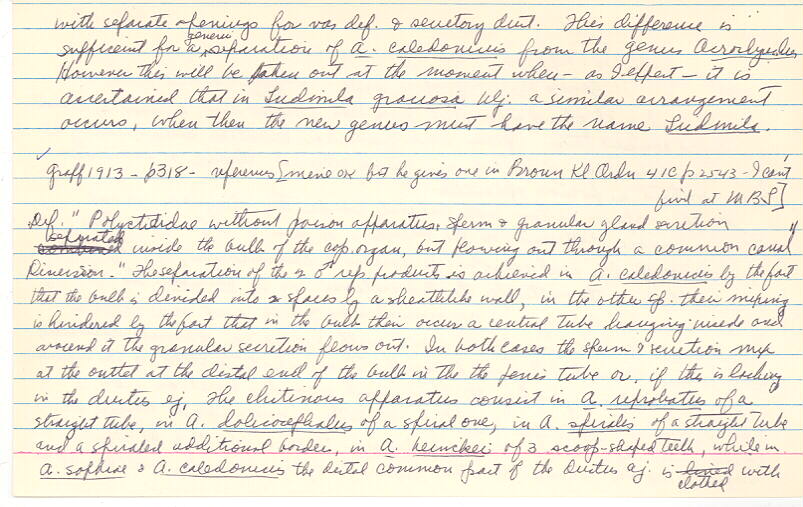 with separate openings for vas def. & secretory duct. This difference is
sufficient for a generic separation of A. caledonicus from the genus Acrorhynchus
However this will be taken out at the moment when - as I expect - it is
ascertained that in Ludmila graciosa Ulj. a similar arrangement
occurs, when then the new genus must have the name Ludmila.
Graff 1913 - p318 - references [mine or but he gives one in Bronn Kl Ordn 4 1C p 2543 - I can't
find at MBL]
Def. " Polycistidae without poison apparatus, sperm & granular gland secretion
separated combined inside the bulb of the cop. organ, but flowing out through a common canal"
Dimension." The separation of the 2 ♂ rep. products is achieved in A. caledonicus by the fact
that the bulb is divided into 2 spaces by a sheathlike wall, in the other sp. their mixing
is hindered by the fact that in the bulb their occurs a central tube hanging inside and
around it the granular secretion flows out. In both cases the sperm & secretion mix
at the outlet at the distal end of the bulb in the the penis tube or, if this is lacking
in the ductus ej. The chitinous apparatus consist in A. reprobatus of a
straight tube, in A. dolicocephalus of a spiral one, in A. spiralis of a straight tube
and a spiraled additional border, in A. heinckei of 3 scoop-shaped teeth, while in
A. sophiae & A. caledonicus the distal common part of the ductus ej. is lined clothed with